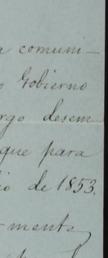 a comuni-
o Gobierno
rgo desem
que para
io de 1853.
-mente